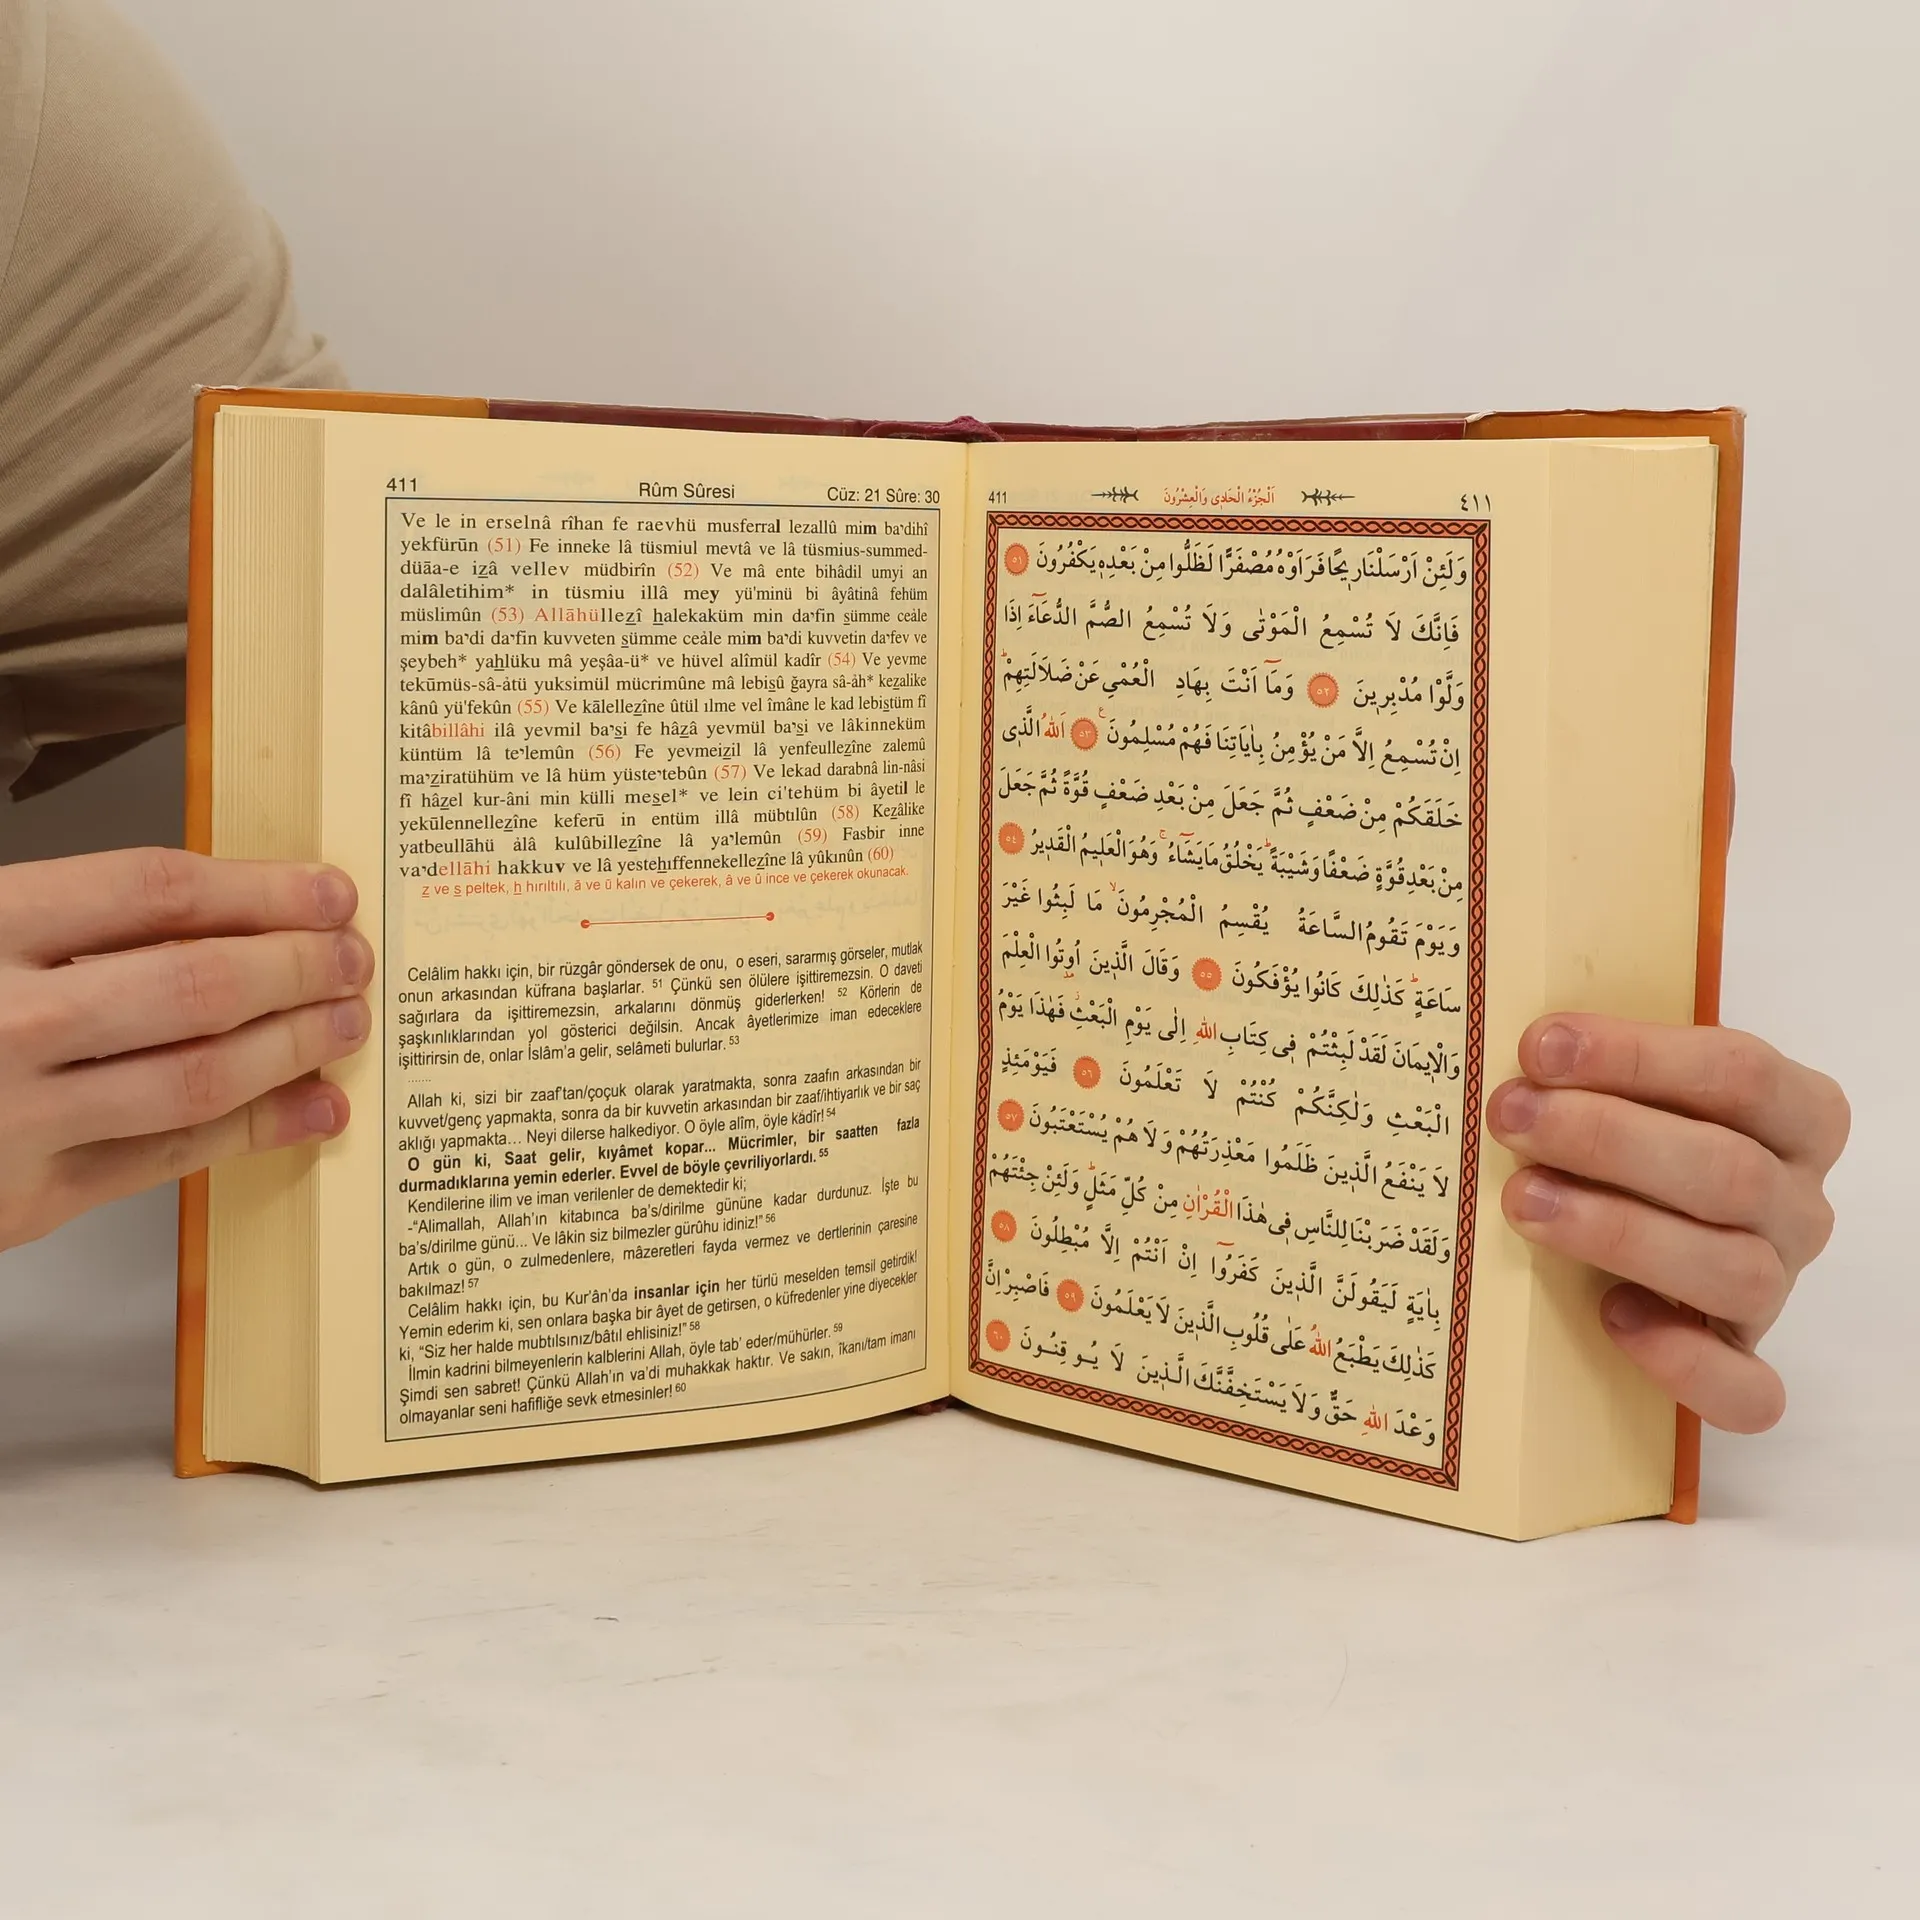 411 Rûm Sûresi Cüz: 21 Sûre: 30
Ve le in erselnâ rîhan fe raevhü musferral lezallû mim ba’dihî
yekfürūn (51) Fe inneke lâ tüsmiul mevtâ ve lâ tüsmius-summed-
düāa-e izâ vellev müdbirîn (52) Ve mâ ente bihâdil umyi an
dalâletihim* in tüsmiu illâ mey yü'minü bi âyâtinâ fehüm
müslimûn (53) Allāhüllezî halekaküm min da’fin sümme ceàle
mim ba’di da’fin kuvveten sümme ceàle mim ba’di kuvvetin da’fev ve
şeybeh* yahlüku mâ yeşâa-ü* ve hüvel alîmül kadîr (54) Ve yevme
tekūmüs-sâ-àtü yuksimül mücrimûne mâ lebisû ğayra sâ-àh* kezalike
kânû yü'fekûn (55) Ve kālellezîne ûtül ılme vel îmâne le kad lebistüm fî
kitâbillâhi ilâ yevmil ba’si fe hâzâ yevmül ba’si ve lâkinneküm
küntüm lâ te’lemûn (56) Fe yevmeizil lâ yenfeullezîne zalemû
ma’ziratühüm ve lâ hüm yüste’tebûn (57) Ve lekad darabnâ lin-nâsi
fî hâzel kur-âni min külli mesel* ve lein ci'tehüm bi âyetil le
yekūlennellezîne keferū in entüm illâ mübtılûn (58) Kezâlike
yatbeullāhü àlâ kulûbillezîne lâ ya’lemûn (59) Fasbir inne
va’dellāhi hakkuv ve lâ yestehıffennekellezîne lâ yûkınûn (60)
z ve s peltek, h hırıltılı, ā ve ū kalın ve çekerek, â ve û ince ve çekerek okunacak.
Celâlim hakkı için, bir rüzgâr göndersek de onu, o eseri, sararmış görseler, mutlak
onun arkasından küfrana başlarlar. 51 Çünkü sen ölülere işittiremezsin. O daveti
sağırlara da işittiremezsin, arkalarını dönmüş giderlerken! 52 Körlerin de
şaşkınlıklarından yol gösterici değilsin. Ancak âyetlerimize iman edeceklere
işittirirsin de, onlar İslâm’a gelir, selâmeti bulurlar. 53
.......
Allah ki, sizi bir zaaf’tan/çoçuk olarak yaratmakta, sonra zaafın arkasından bir
kuvvet/genç yapmakta, sonra da bir kuvvetin arkasından bir zaaf/ihtiyarlık ve bir saç
aklığı yapmakta... Neyi dilerse halkediyor. O öyle alîm, öyle kâdîr! 54
O gün ki, Saat gelir, kıyâmet kopar... Mücrimler, bir saatten fazla
durmadıklarına yemin ederler. Evvel de böyle çevriliyorlardı. 55
Kendilerine ilim ve iman verilenler de demektedir ki;
-“Alimallah, Allah’ın kitabınca ba’s/dirilme gününe kadar durdunuz. İşte bu
ba’s/dirilme günü... Ve lâkin siz bilmezler gürûhu idiniz!” 56
Artık o gün, o zulmedenlere, mâzeretleri fayda vermez ve dertlerinin çaresine
bakılmaz! 57
Celâlim hakkı için, bu Kur’ân’da insanlar için her türlü meselden temsil getirdik!
Yemin ederim ki, sen onlara başka bir âyet de getirsen, o küfredenler yine diyecekler
ki, “Siz her halde mubtılsınız/bâtıl ehlisiniz!” 58
İlmin kadrini bilmeyenlerin kalblerini Allah, öyle tab’ eder/mühürler. 59
Şimdi sen sabret! Çünkü Allah’ın va’di muhakkak haktır. Ve sakın, îkanı/tam imanı
olmayanlar seni hafifliğe sevk etmesinler! 60
411 اَلْجُزْءُ الْحَادِى وَالْعِشْرُونَ ٤١١
وَلَئِنْ اَرْسَلْنَا رِيحًا فَرَاَوْهُ مُصْفَرًّا لَظَلُّوا مِنْ بَعْدِهِ يَكْفُرُونَ ٥١
فَاِنَّكَ لَا تُسْمِعُ الْمَوْتٰى وَلَا تُسْمِعُ الصُّمَّ الدُّعَٓاءَ اِذَا
وَلَّوْا مُدْبِرِينَ ٥٢ وَمَٓا اَنْتَ بِهَادِ الْعُمْىِ عَنْ ضَلَالَتِهِمْۜ
اِنْ تُسْمِعُ اِلَّا مَنْ يُؤْمِنُ بِاٰيَاتِنَا فَهُمْ مُسْلِمُونَ ٥٣ اَللّٰهُ الَّذِى
خَلَقَكُمْ مِنْ ضَعْفٍ ثُمَّ جَعَلَ مِنْ بَعْدِ ضَعْفٍ قُوَّةً ثُمَّ جَعَلَ
مِنْ بَعْدِ قُوَّةٍ ضَعْفًا وَشَيْبَةًۜ يَخْلُقُ مَا يَشَٓاءُۚ وَهُوَ الْعَلِيمُ الْقَدِيرُ ٥٤
وَيَوْمَ تَقُومُ السَّاعَةُ يُقْسِمُ الْمُجْرِمُونَۙ مَا لَبِثُوا غَيْرَ
سَاعَةٍۜ كَذٰلِكَ كَانُوا يُؤْفَكُونَ ٥٥ وَقَالَ الَّذِينَ اُوتُوا الْعِلْمَ
وَالْاِيمَانَ لَقَدْ لَبِثْتُمْ فِى كِتَابِ اللّٰهِ اِلٰى يَوْمِ الْبَعْثِۘ فَهٰذَا يَوْمُ
الْبَعْثِ وَلٰكِنَّكُمْ كُنْتُمْ لَا تَعْلَمُونَ ٥٦ فَيَوْمَئِذٍ
لَا يَنْفَعُ الَّذِينَ ظَلَمُوا مَعْذِرَتُهُمْ وَلَا هُمْ يُسْتَعْتَبُونَ ٥٧
وَلَقَدْ ضَرَبْنَا لِلنَّاسِ فِى هٰذَا الْقُرْاٰنِ مِنْ كُلِّ مَثَلٍۜ وَلَئِنْ جِئْتَهُمْ
بِاٰيَةٍ لَيَقُولَنَّ الَّذِينَ كَفَرُٓوا اِنْ اَنْتُمْ اِلَّا مُبْطِلُونَ ٥٨
كَذٰلِكَ يَطْبَعُ اللّٰهُ عَلٰى قُلُوبِ الَّذِينَ لَا يَعْلَمُونَ ٥٩ فَاصْبِرْ اِنَّ
وَعْدَ اللّٰهِ حَقٌّ وَلَا يَسْتَخِفَّنَّكَ الَّذِينَ لَا يُوقِنُونَ ٦٠